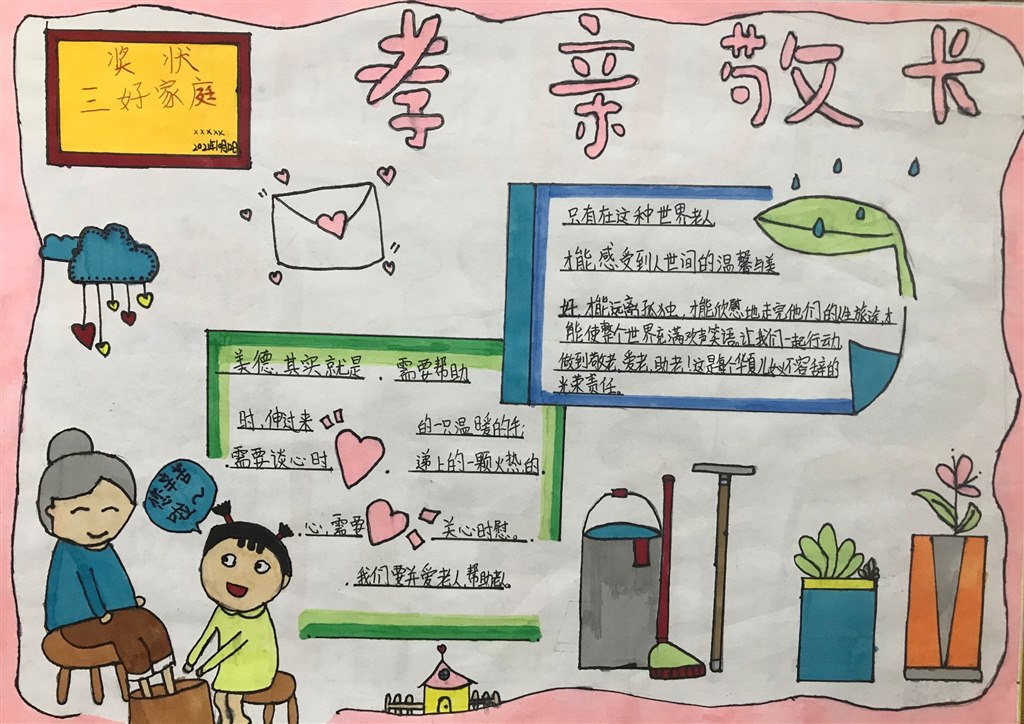 孝亲敬长
奖状
三好家庭
xxxxx
只有在这种世界老人
才能感受到人世间的温馨与美
好,才能远离孤独,才能欣慰地走完他们的人生旅途,才
能使整个世界充满欢声笑语,让我们一起行动
做到敬老、爱老、助老!这是每个华夏儿女不容辞的
光荣责任。
美德,其实就是,需要帮助
时,伸过来的一只温暖的手;
需要谈心时,递上的一颗火热的
心,需要关心时慰。
我们要关爱老人,帮助老人。